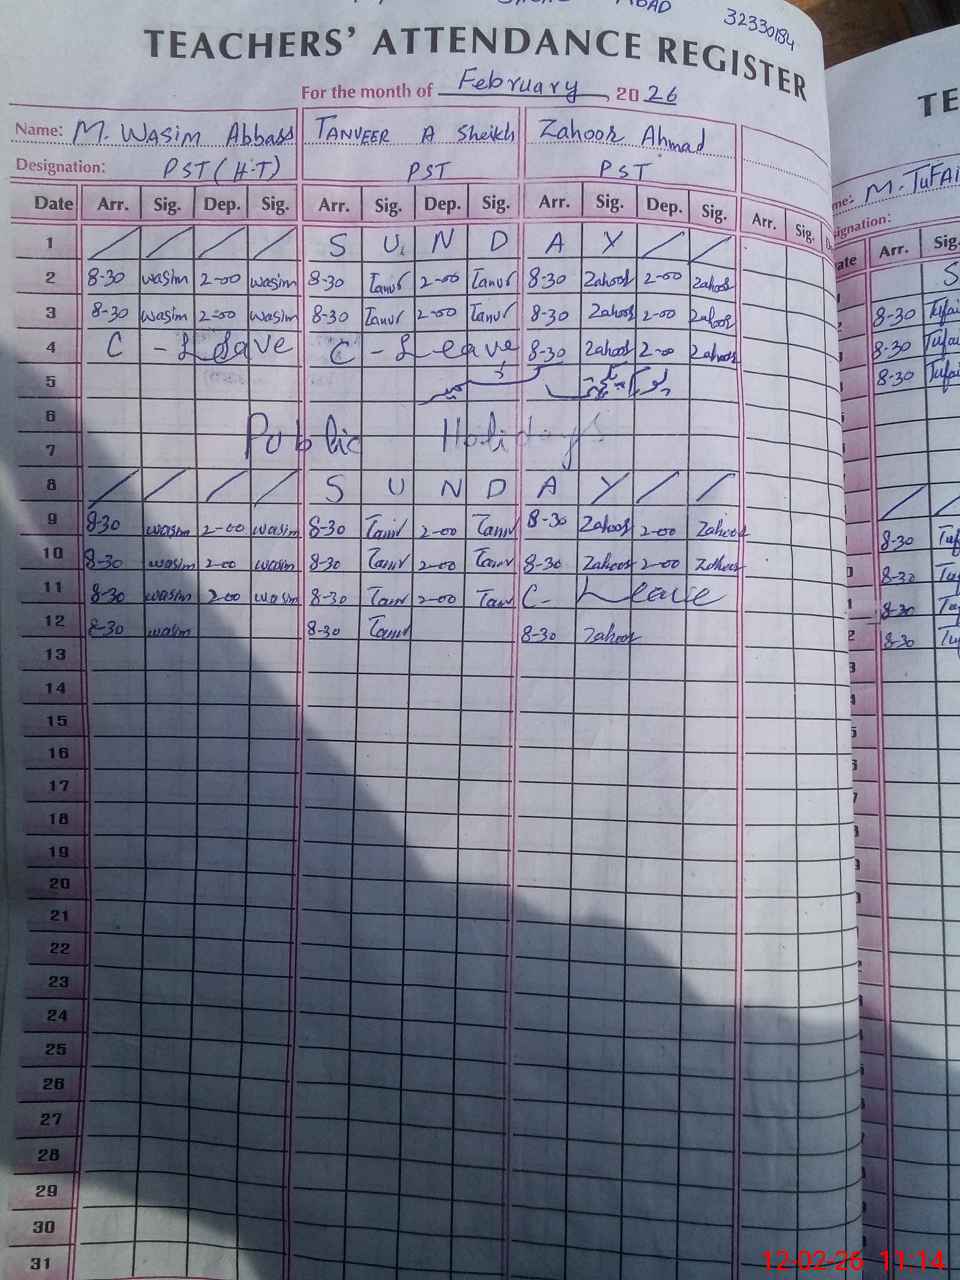 ABAD
32330184
TEACHERS' ATTENDANCE REGISTER
For the month of February, 2026
Name: M. Wasim Abbass TANVEER A Sheikh Zahoor Ahmad
Designation: PST (H.T) PST PST
Date Arr. Sig. Dep. Sig. Arr. Sig. Dep. Sig. Arr. Sig. Dep. Sig. Arr. Sig.
1 S U N D A Y
2 8-30 wasim 2-00 wasim 8-30 Tanvr 2-00 Tanvr 8-30 Zahoor 2-00 Zahoor
3 8-30 wasim 2-00 wasim 8-30 Tanvr 2-00 Tanvr 8-30 Zahoor 2-00 Zahoor
4 C - Leave C - Leave 8-30 Zahoor 2-00 Zahoor
5
6 Public Holidays
7
8 S U N D A Y
9 8-30 wasim 2-00 wasim 8-30 Tanvr 2-00 Tanvr 8-30 Zahoor 2-00 Zahoor
10 8-30 wasim 2-00 wasim 8-30 Tanvr 2-00 Tanvr 8-30 Zahoor 2-00 Zahoor
11 8-30 wasim 2-00 wasim 8-30 Tanvr 2-00 Tanvr C- Leave
12 8-30 wasim 8-30 Tanvr 8-30 Zahoor
13
14
15
16
17
18
19
20
21
22
23
24
25
26
27
28
29
30
31
TE
M. TUFAI
Arr. Sig.
S
8-30 Tufai
8-30 Tufai
8-30 Tufai
8-30 Tuf
8-30 Tuf
8-30 Tuf
8-30 Tuf
12-02-26 11:14